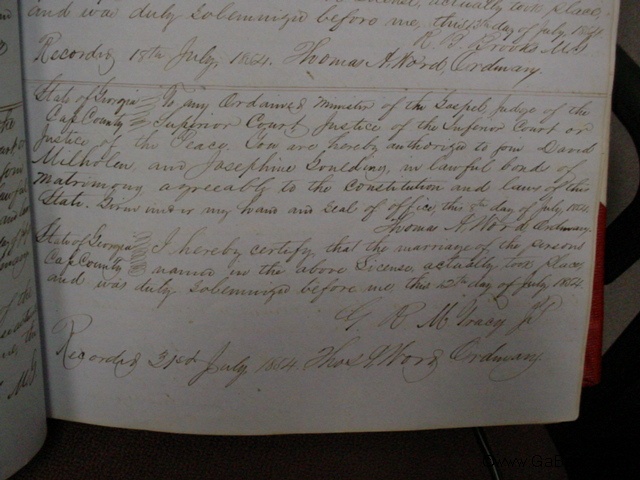 and was duly solemnized before me, this day of July 1864
R B Brooks M.G
Recorded 18th July, 1864. Thomas A. Word, Ordinary.
State of Georgia To any Ordained Minister of the Gospel, Judge of the
Cass County Superior Court, Justice of the Inferior Court or
Justice of the Peace, You are hereby authorized to join David
Milholen and Josephine Goulding, in lawful bonds of
matrimony agreeably to the constitution and laws of this
State. Given under my hand and Seal of office, this day of July, 1864.
Thomas A. Word Ordinary.
State of Georgia I hereby certify, that the marriage of the persons
Cass County named in the above License, actually took place,
and was duly Solemnized before me, this day of July 1864.
G. R. McTracy
Recorded 31st July 1864. Thos A Word Ordinary.